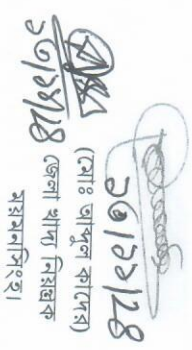 ২৩/১১/২৪
২৩/১১/২৪
(মোঃ আব্দুল কাদের)
জেলা খাদ্য নিয়ন্ত্রক
ময়মনসিংহ।